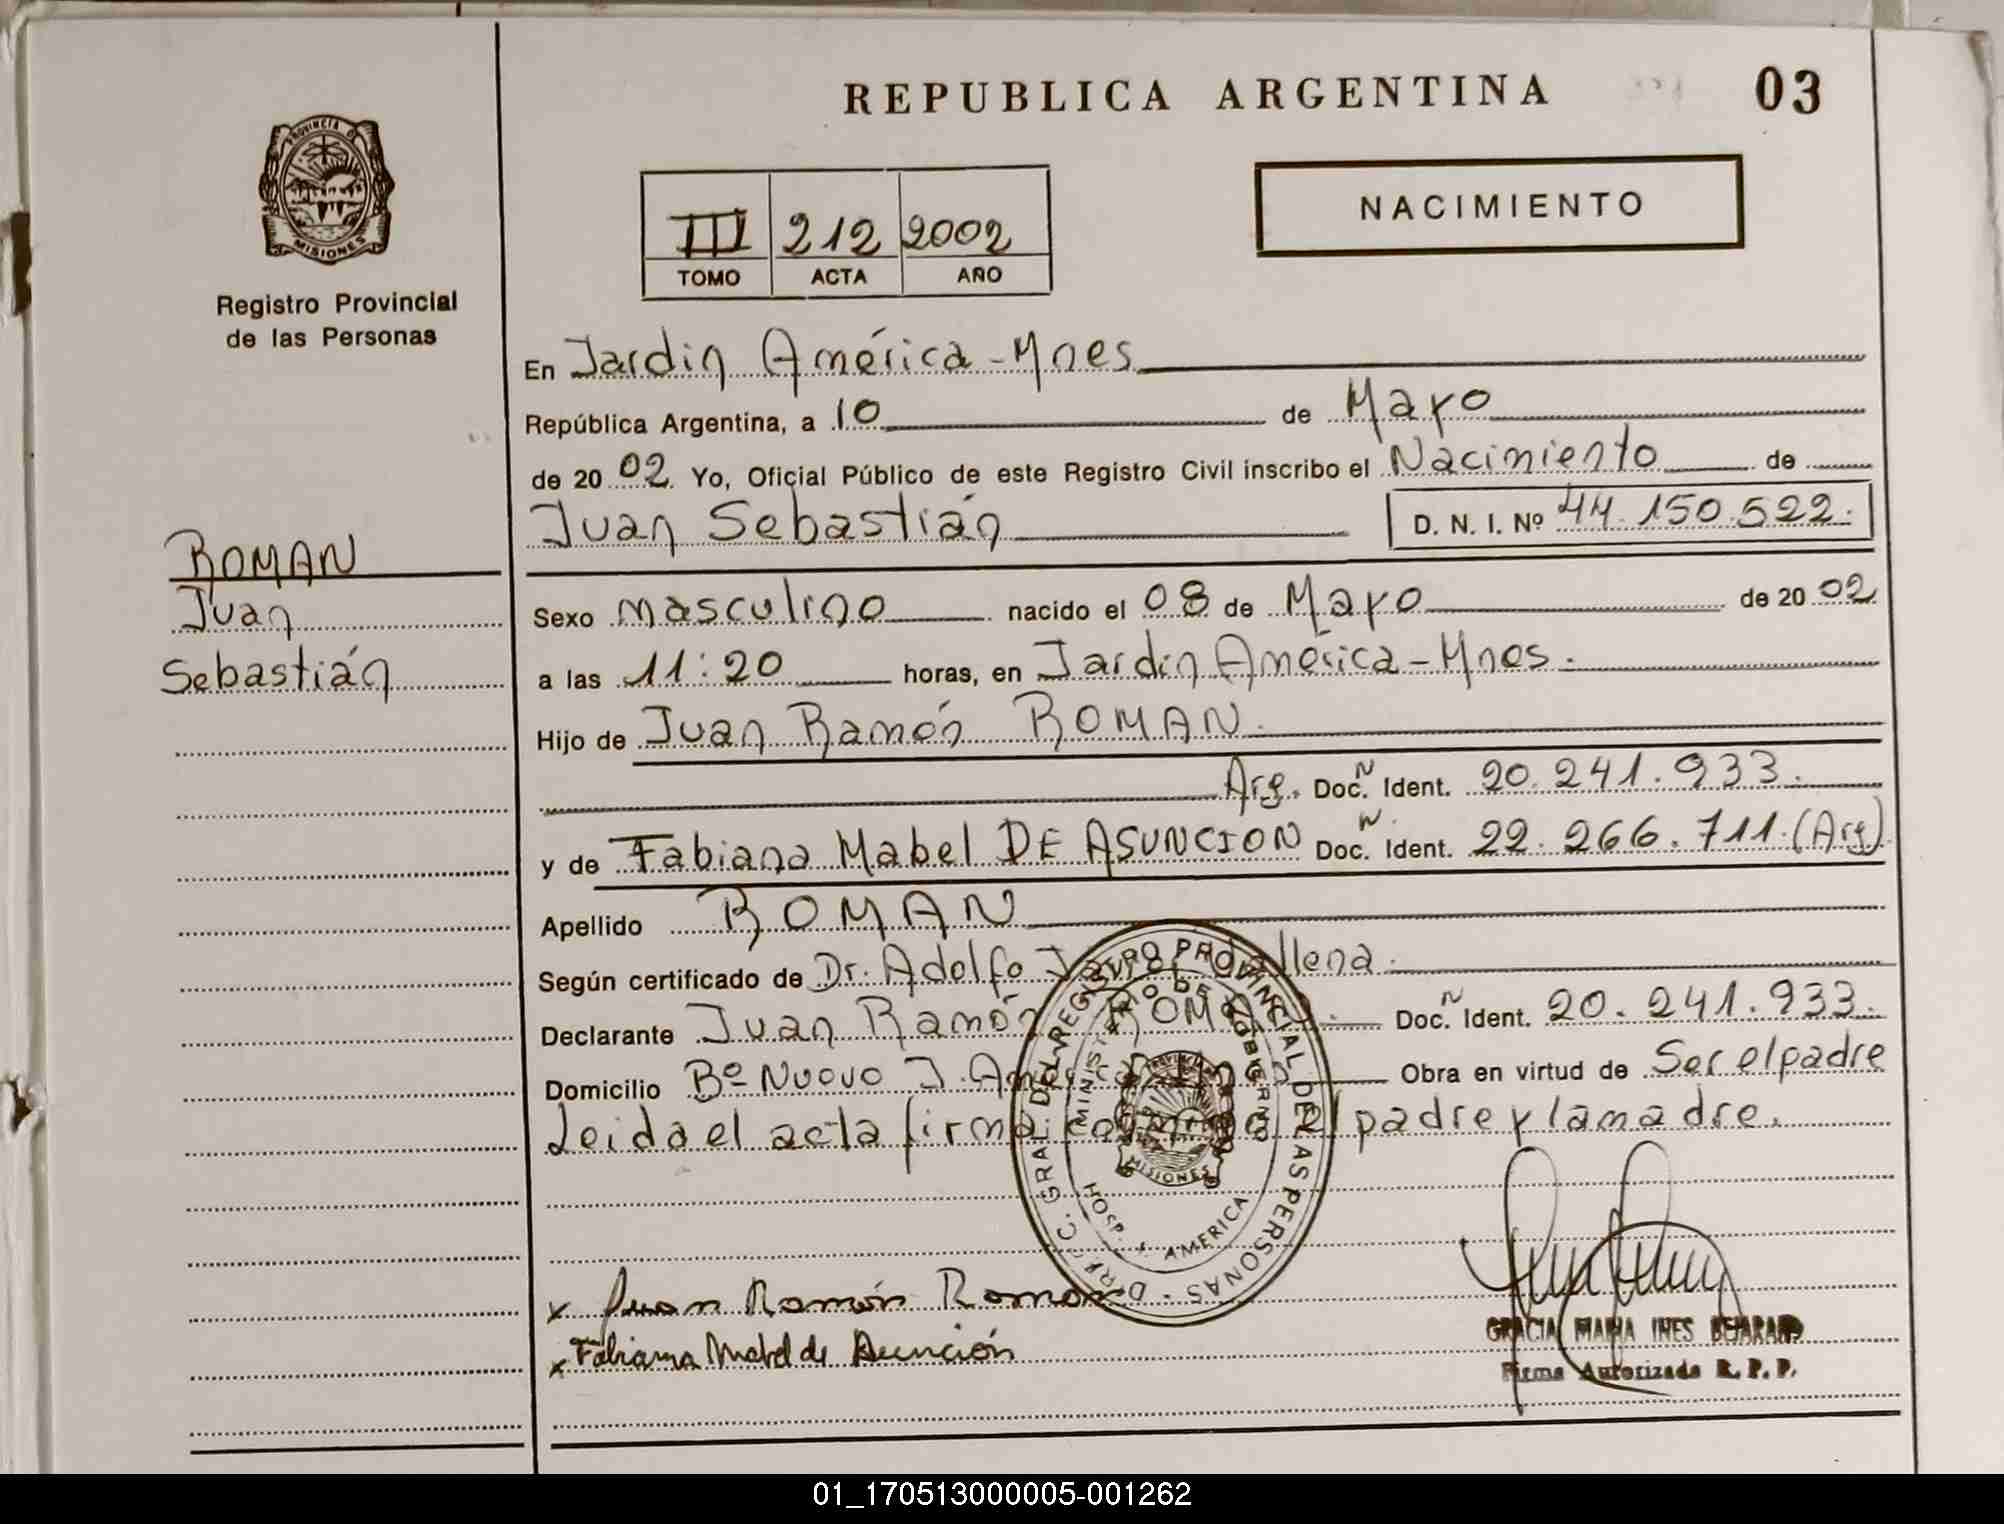 REPUBLICA ARGENTINA 03
PROVINCIA DE
MISIONES
Registro Provincial
de las Personas
III 212 2002
TOMO ACTA AÑO
NACIMIENTO
En Jardin América - Mnes
República Argentina, a 10 de Mayo
de 20 02 Yo, Oficial Público de este Registro Civil inscribo el Nacimiento de
Juan Sebastián D. N. I. Nº 44.150.522.
ROMAN
Juan
Sebastián
Sexo masculino nacido el 08 de Mayo de 20 02
a las 11:20 horas, en Jardin América - Mnes.
Hijo de Juan Ramón ROMAN.
Arg. Doc. N Ident. 20.241.933.
y de Fabiana Mabel DE ASUNCION Doc. N Ident. 22.266.711.(Arg)
Apellido ROMAN
Según certificado de Dr. Adolfo
Declarante Juan Ramón ROMAN. Doc. N Ident. 20.241.933.
Domicilio Bº Nuovo J. América Mnes Obra en virtud de Ser el padre
Leida el acta firma conmigo el padre y la madre.
DIRECC. GRAL. DEL REGISTRO PROVINCIAL DE LAS PERSONAS
MINISTERIO DE GOBIERNO
PROVINCIA DE
MISIONES
HOSP. J. AMERICA
x Juan Ramón Roman
x Fabiana Mabel de Asunción
GRACIA MARIA INES BEJARANO
Firma Autorizada R. P. P.
01_170513000005-001262